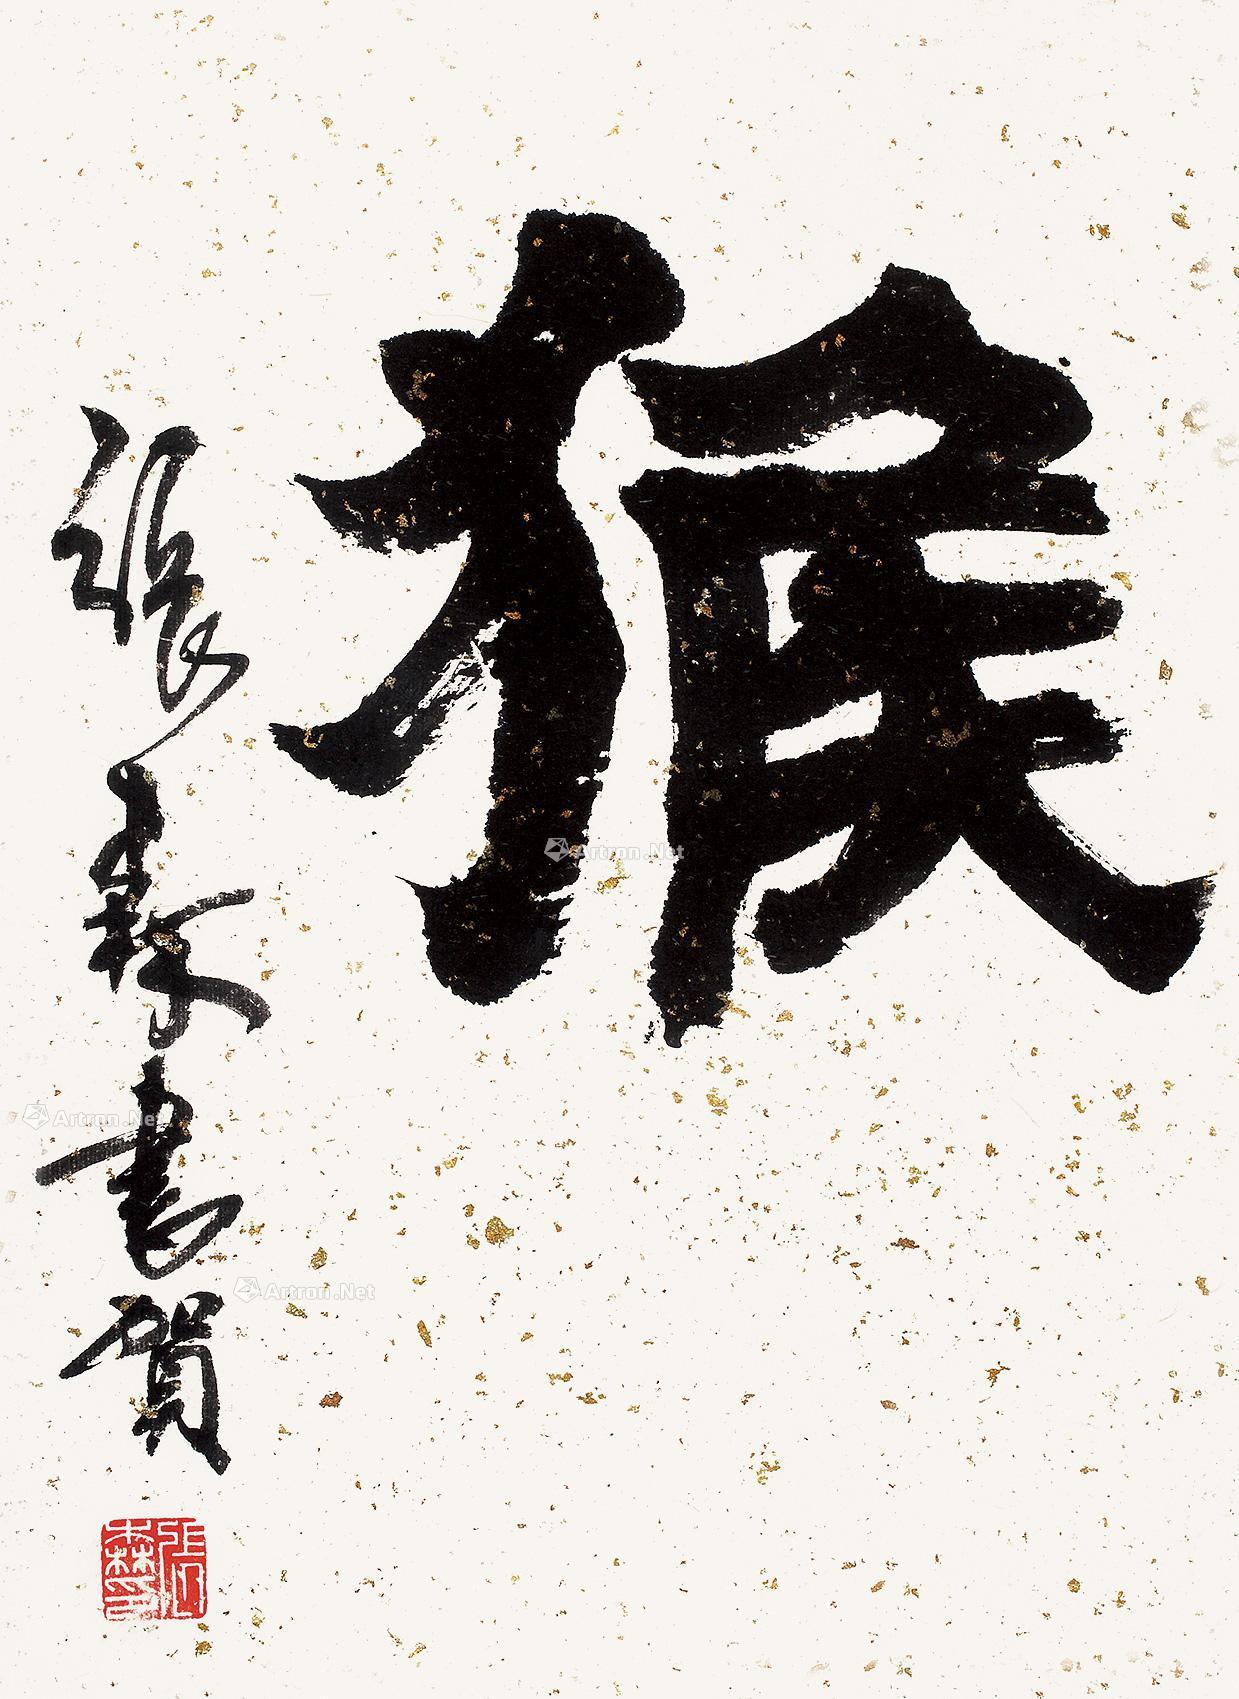 猴
张森书贺
张森印
Artron.Net
Artron.Net
Artron.Net